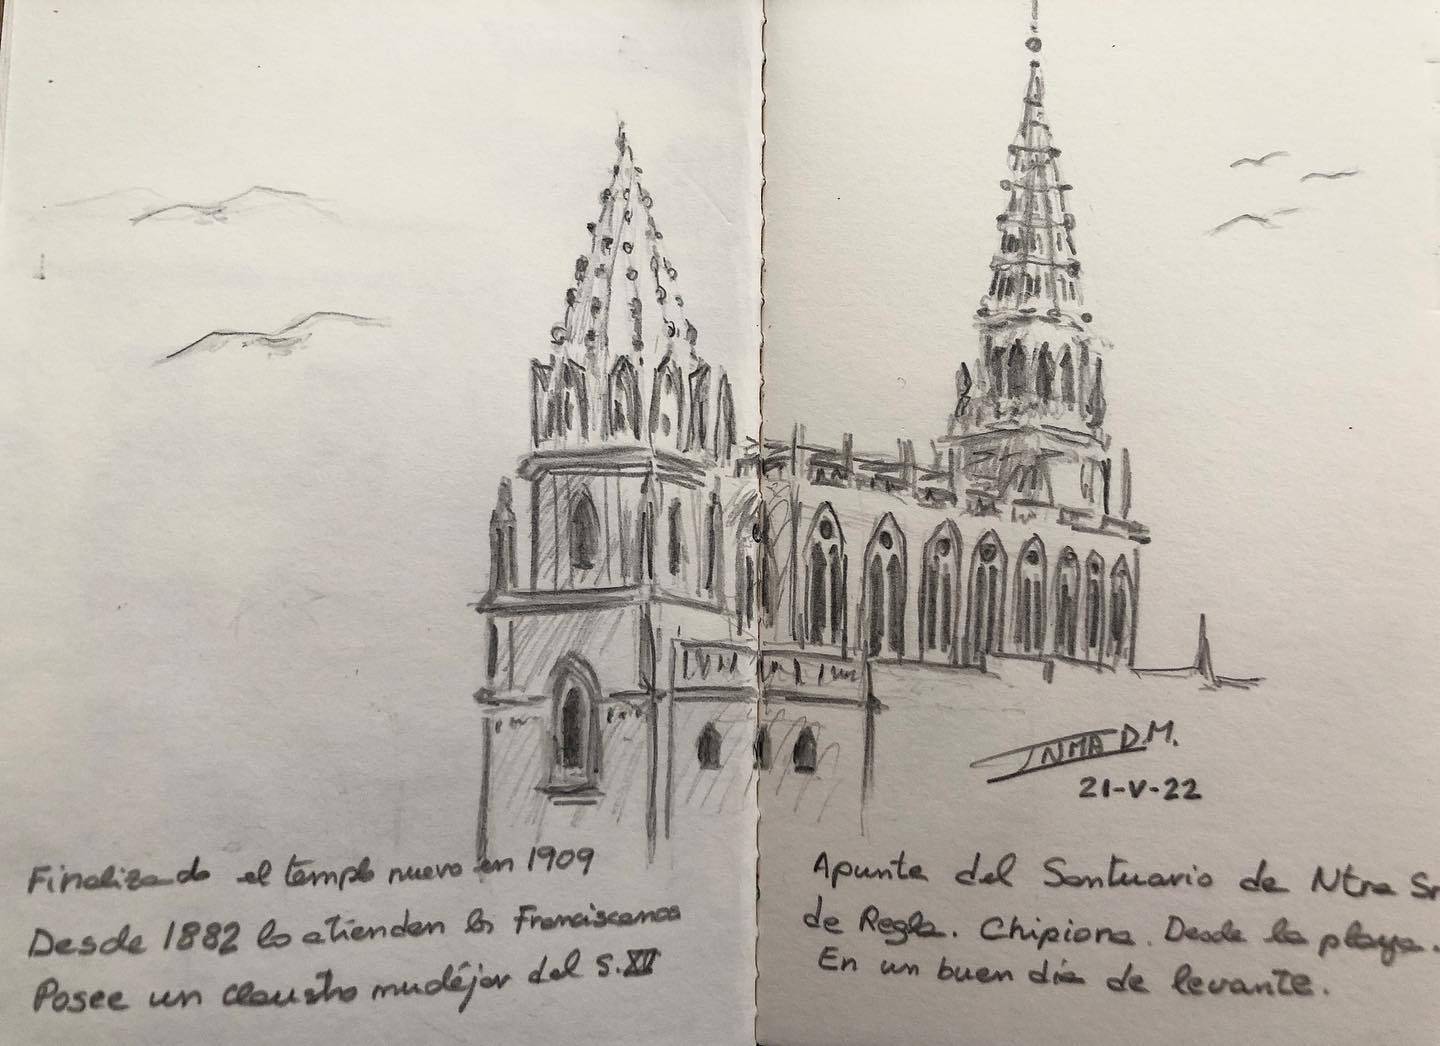 INMA D.M.
21-V-22
Finalizado el templo nuevo en 1909
Desde 1882 lo atienden los Franciscanos
Posee un claustro mudéjar del S.XV
Apunte del Santuario de Ntra Sr
de Regla. Chipiona. Desde la playa.
En un buen día de levante.